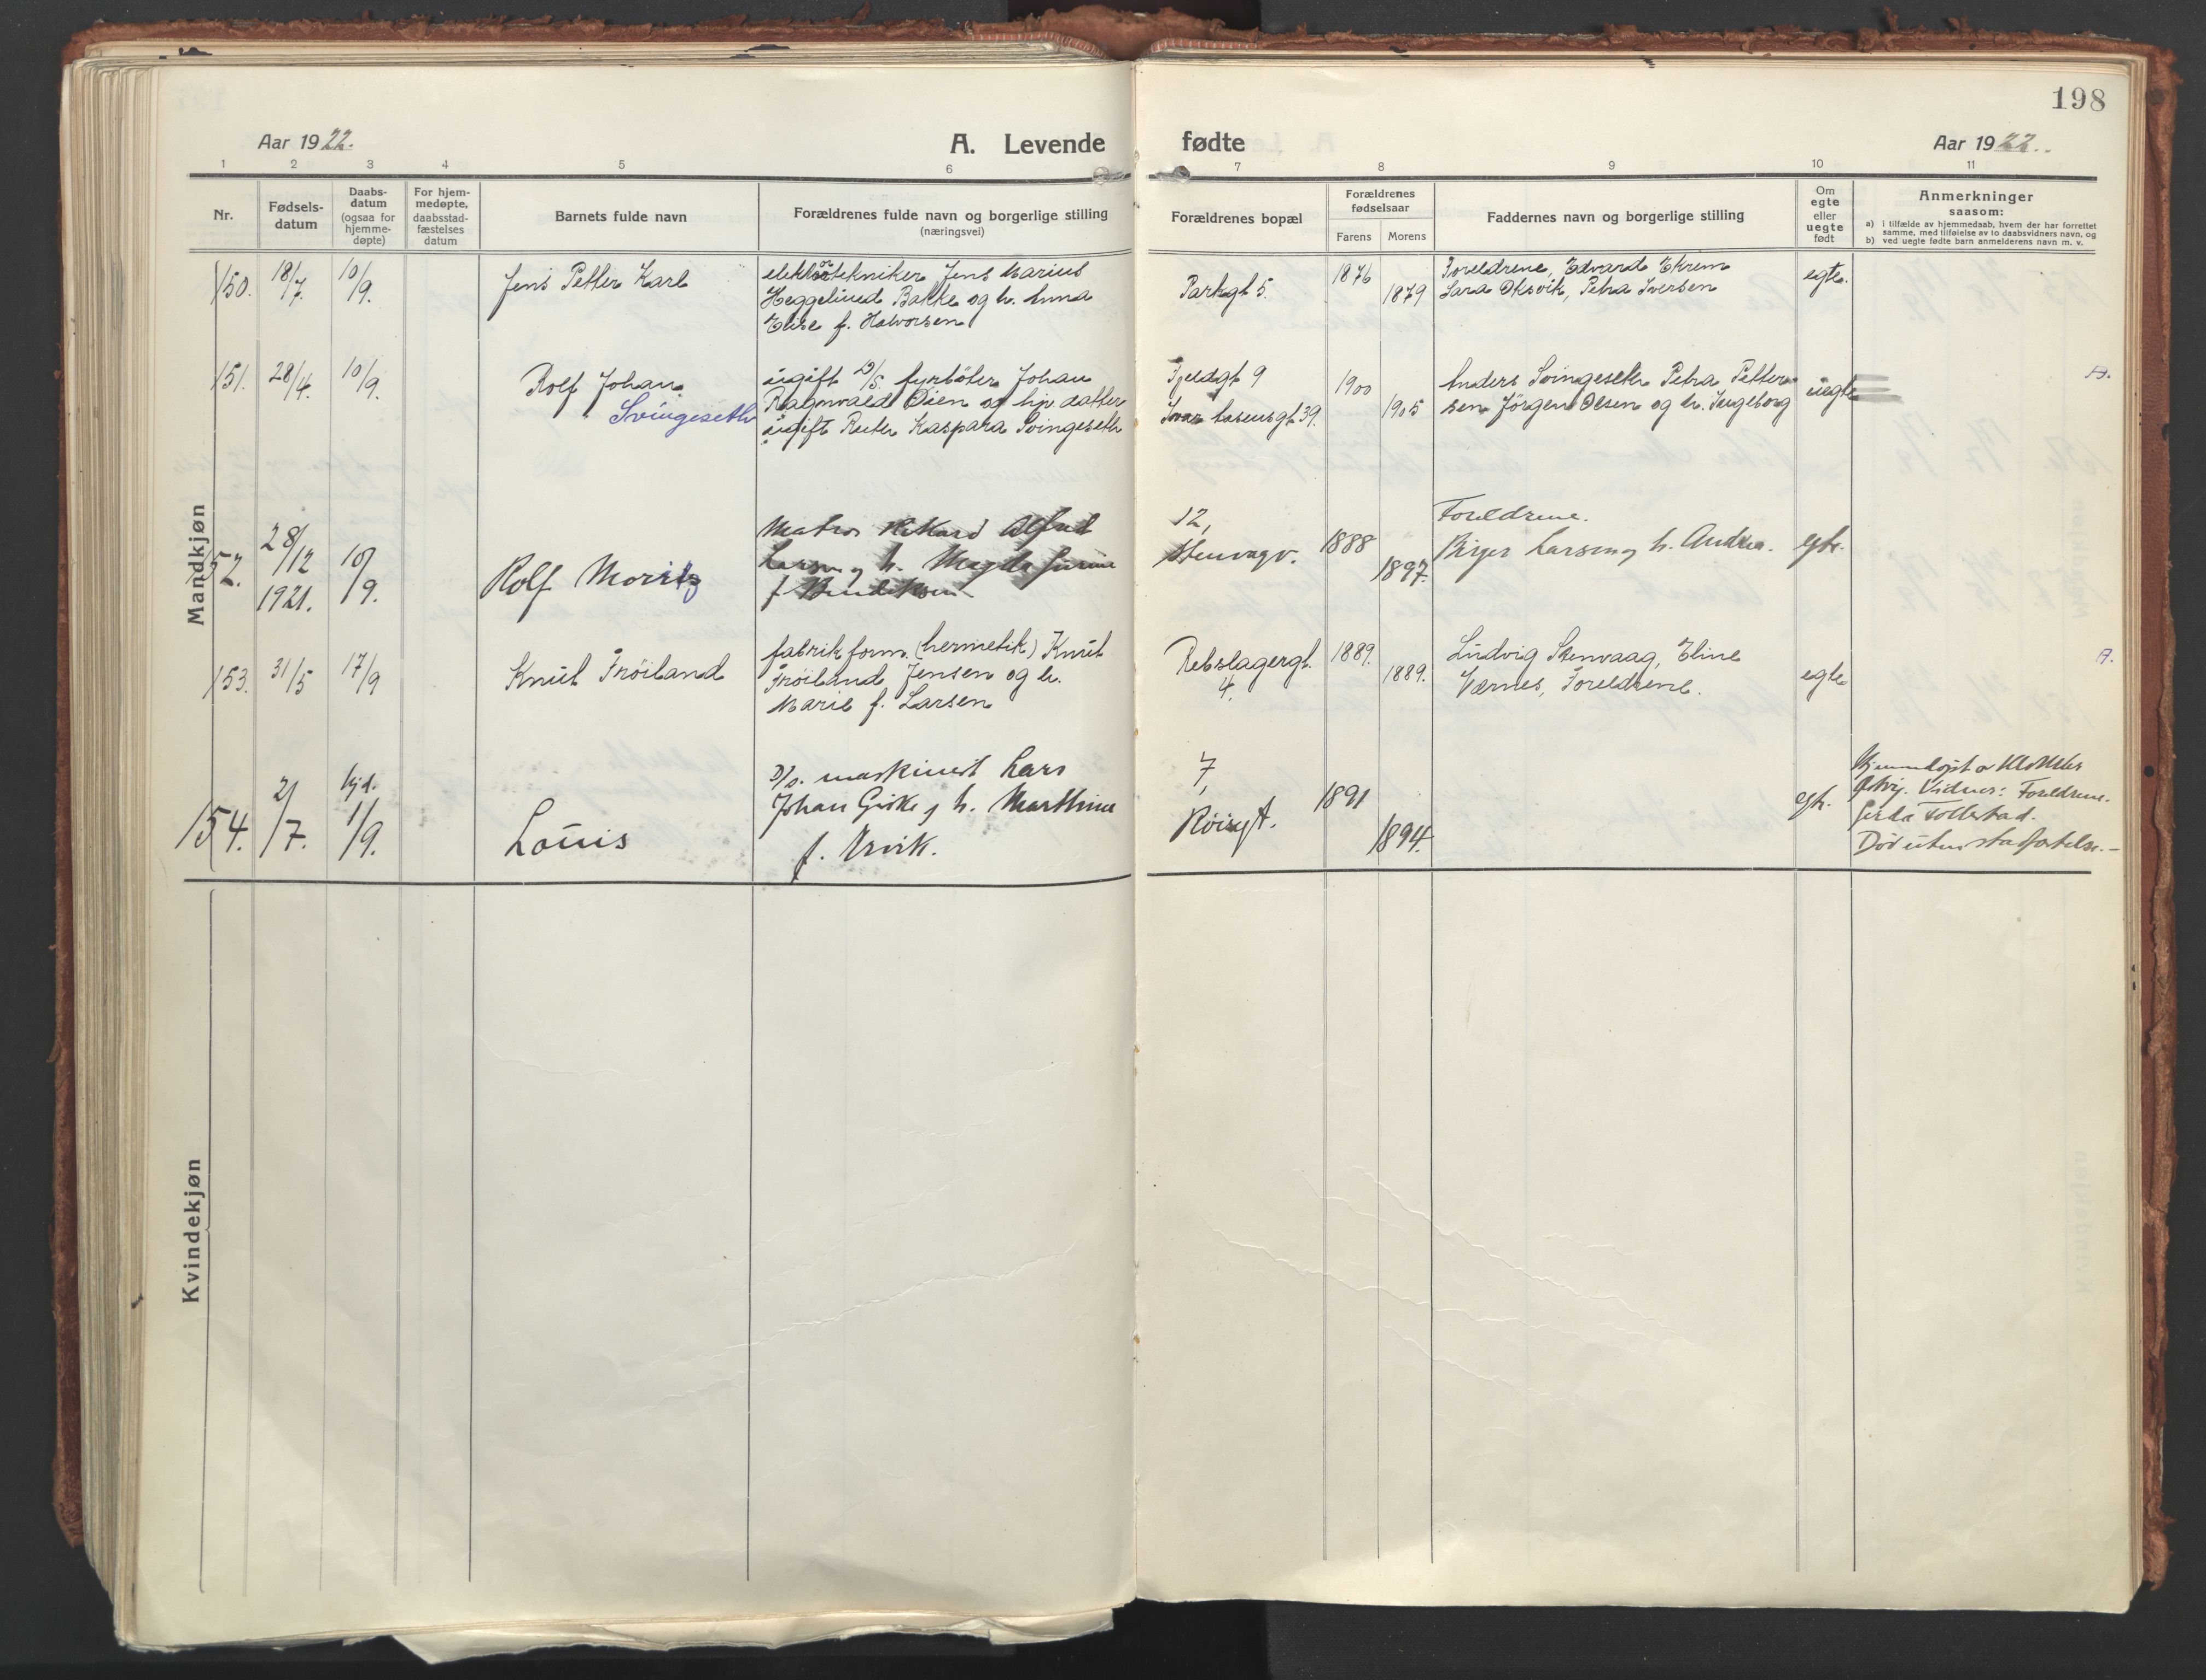 198
Aar 1922.
A. Levende fødte
Aar 1922.
1 2 3 4 5 6 7 8 9 10 11
Nr.
Fødsels-
datum
Daabs-
datum
(ogsaa for
hjemme-
døpte)
For hjem-
medøpte,
daabsstad-
fæstelses
datum
Barnets fulde navn
Forældrenes fulde navn og borgerlige stilling
(næringsvei)
Forældrenes bopæl
Forældrenes
fødselsaar
Farens Morens
Faddernes navn og borgerlige stilling
Om
egte
eller
uegte
født
Anmerkninger
saasom:
a) i tilfælde av hjemmedaab, hvem der har forrettet
samme, med tilføielse av to daabsvidners navn, og
b) ved uegte fødte barn anmelderens navn m. v.
Mandkjøn
150. 18/7. 10/9.
Jens Petter Karl
elektrotekniker Jens Marius
Heggelund Bakke og h. Anna
Elise f. Halvorsen
Parkgt 5.
1876
1879
Foreldrene, Edvard Ekrem
Sara Oksvik, Petra Iversen
egte.
151. 28/4. 10/9.
Rolf Johan
Svingeseth
ugift fyrbøter Johan
Ragnvald Øien og hjv. datter
ugift Ruth Kaspara Svingeseth
Fjeldgt 9
Ivar Aasensgt 39.
1900
1905
Anders Svingeseth Petra Petter
sen Jörgen Olsen og h. Ingeborg
uegte
A.
152. 28/12 1921. 10/9.
Rolf Moritz
Matros Rikard Alfred
Larsen og h. Magda
f. Bendiksen
12,
Stenvagv.
1888
1897.
Foreldrene.
Birger Larsen og h. Andrea.
egte.
153. 31/5 17/9
Knut Frøiland
fabrikform. (hermetik) Knut
Frøiland Jensen og h.
Marie f. Larsen
Rebslagergt.
4.
1889.
1889.
Ludvig Stenvaag, Eline
Værnes, Foreldrene.
egte
A.
154. 2/7. hjd. 1/9.
Louis
D/s. maskinist Lars
Johan Giske og h. Marthine
f. Ervik.
7,
Røisgt.
1891
1894.
egte.
Hjemmedøpt av
Vidner: Foreldrene.
Gerda Tollestad.
Død uten stadfæstelse.-
Kvindekjøn